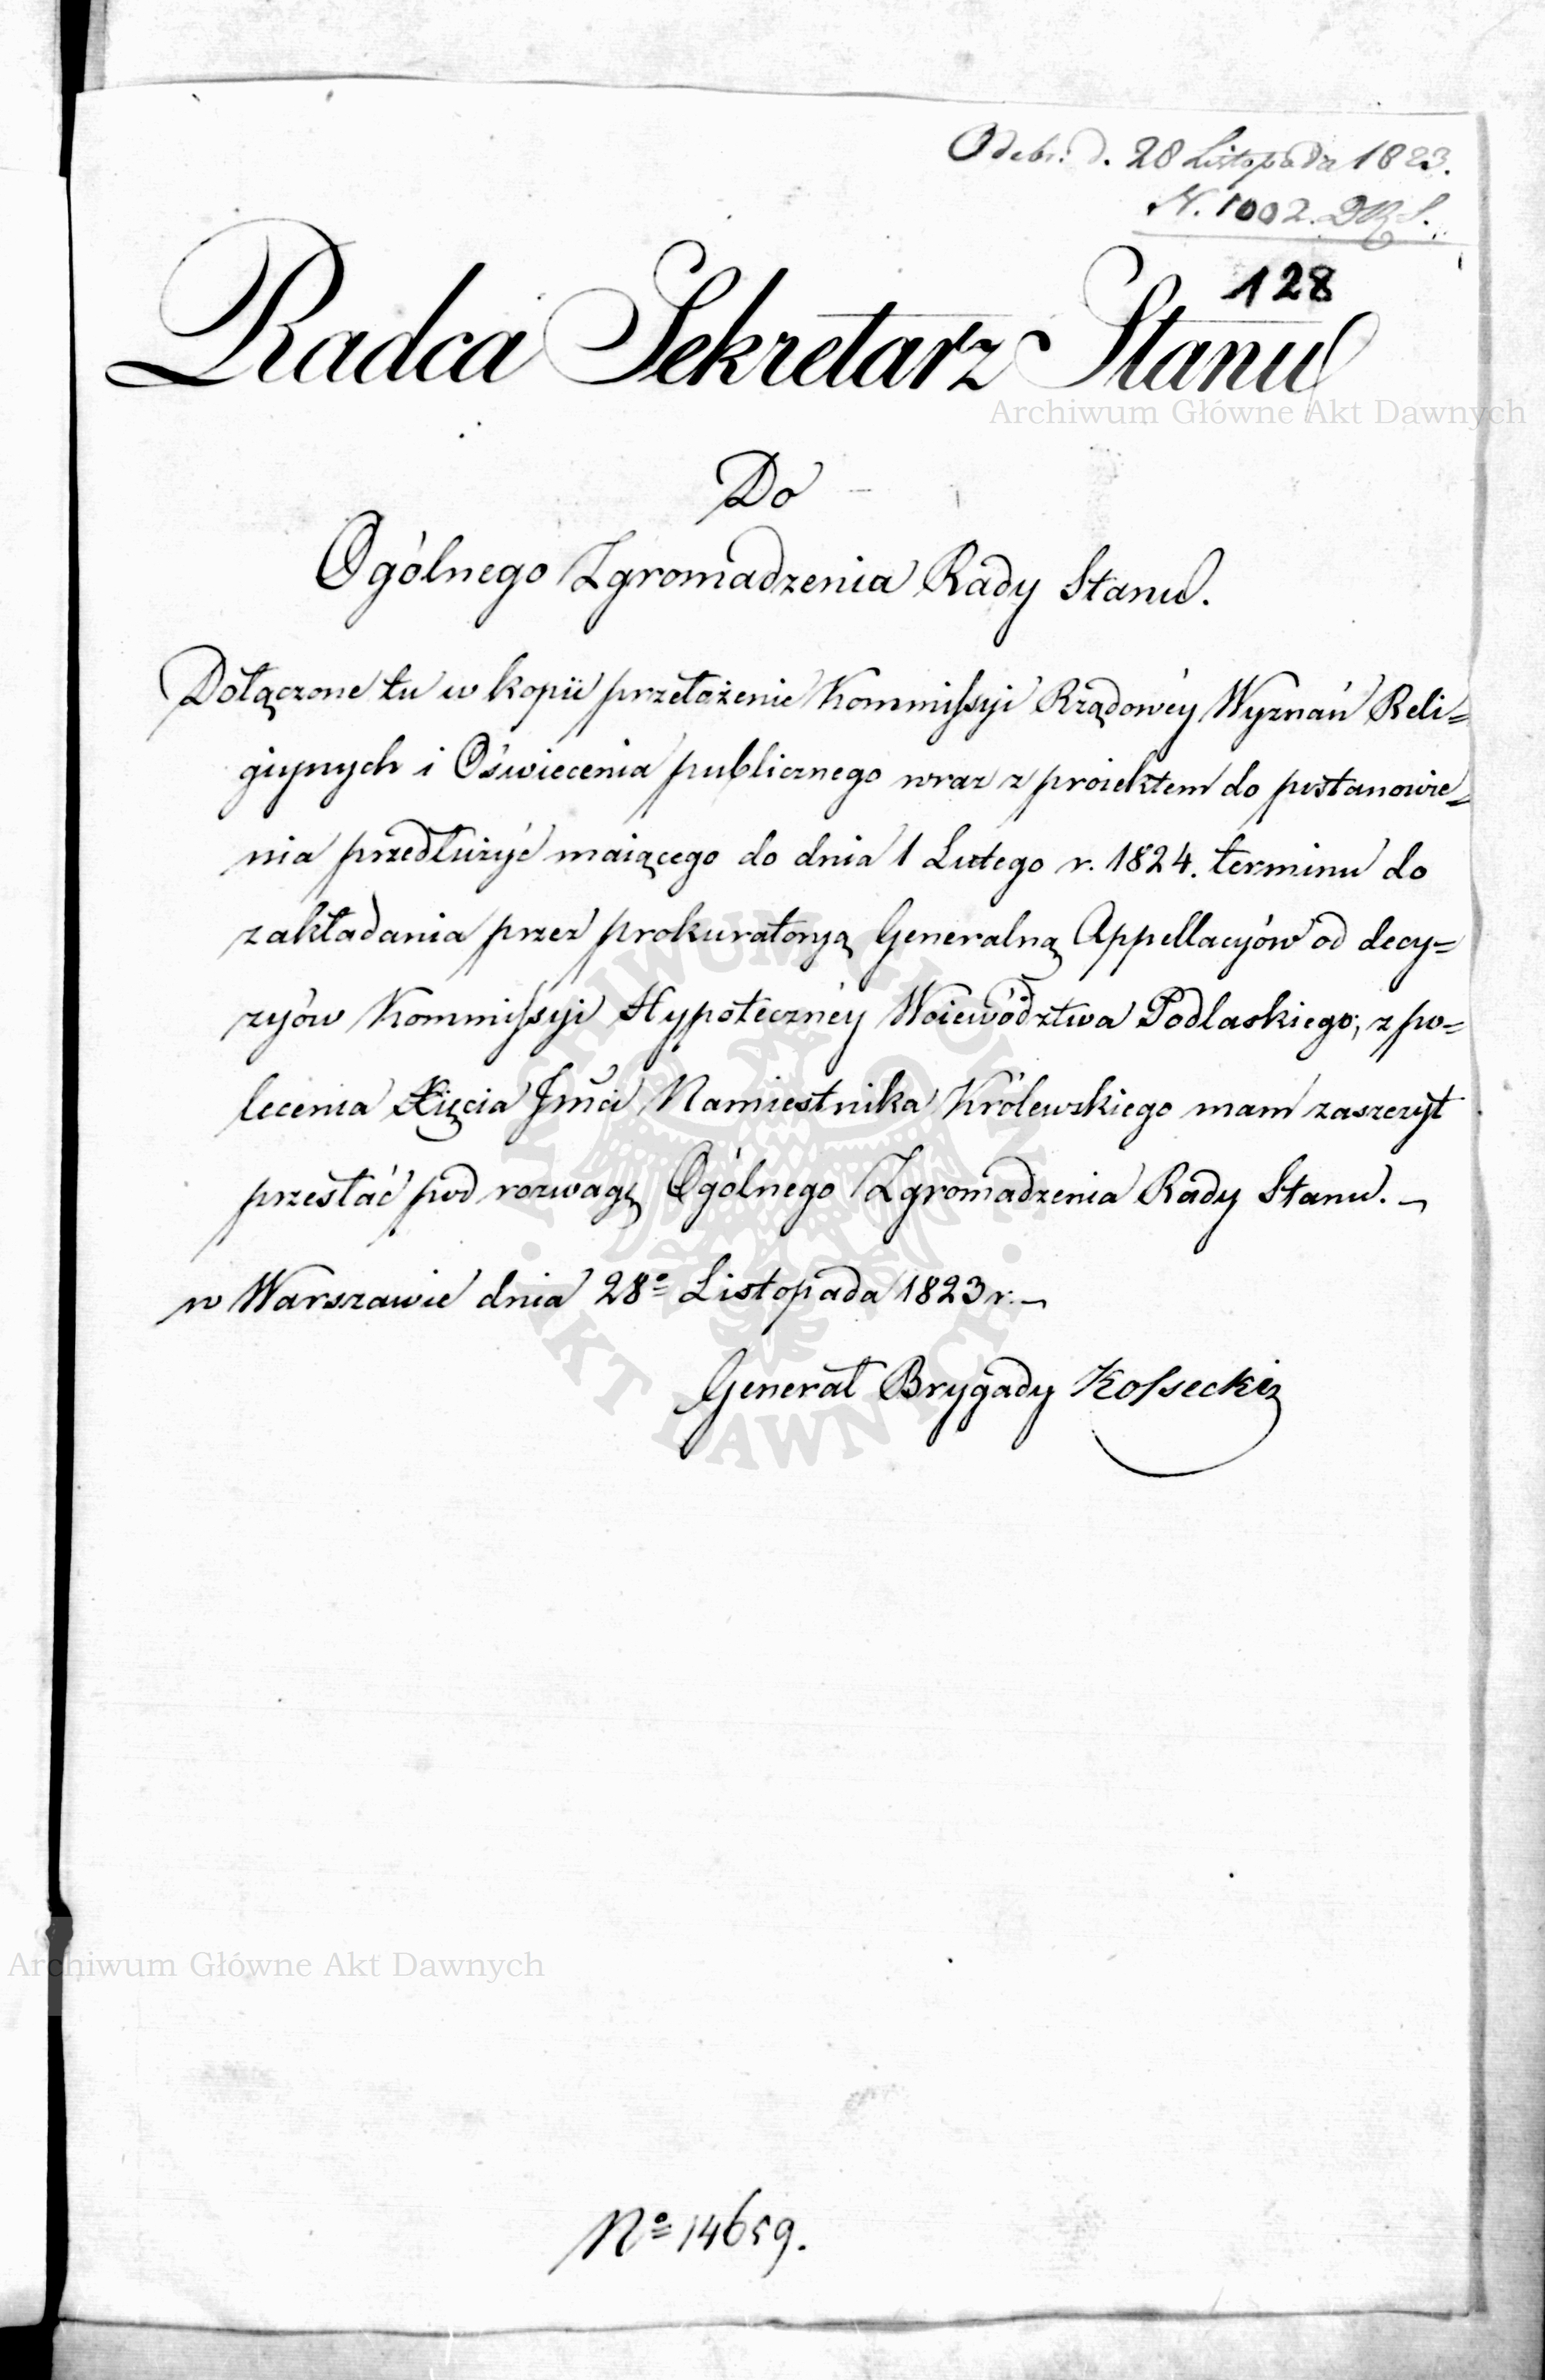 Odebr: d. 28 Listopada 1823.
N. 1002. DRS.
128
Radca Sekretarz Stanu
Archiwum Główne Akt Dawnych
Do
Ogólnego Zgromadzenia Rady Stanu.
Dołączone tu w kopii przełożenie Kommissyi Rządowéy Wyznań Reli=
giynych i Oświecenia publicznego wraz z proiektem do postanowie=
nia przedłużyć maiącego do dnia 1 Lutego r. 1824. terminu do
zakładania przez prokuratoryą Generalną Appellacyów od decy=
zyów Kommissyi Hypotecznéy Woiewództwa Podlaskiego; z po=
lecenia Xięcia Jmci Namiestnika Królewskiego mam zaszczyt
przesłać pod rozwagę Ogólnego Zgromadzenia Rady Stanu. –
w Warszawie dnia 28º Listopada 1823 r. –
Generał Brygady Kossecki
ARCHIWUM GŁÓWNE · AKT DAWNYCH ·
Archiwum Główne Akt Dawnych
Nº 14659.